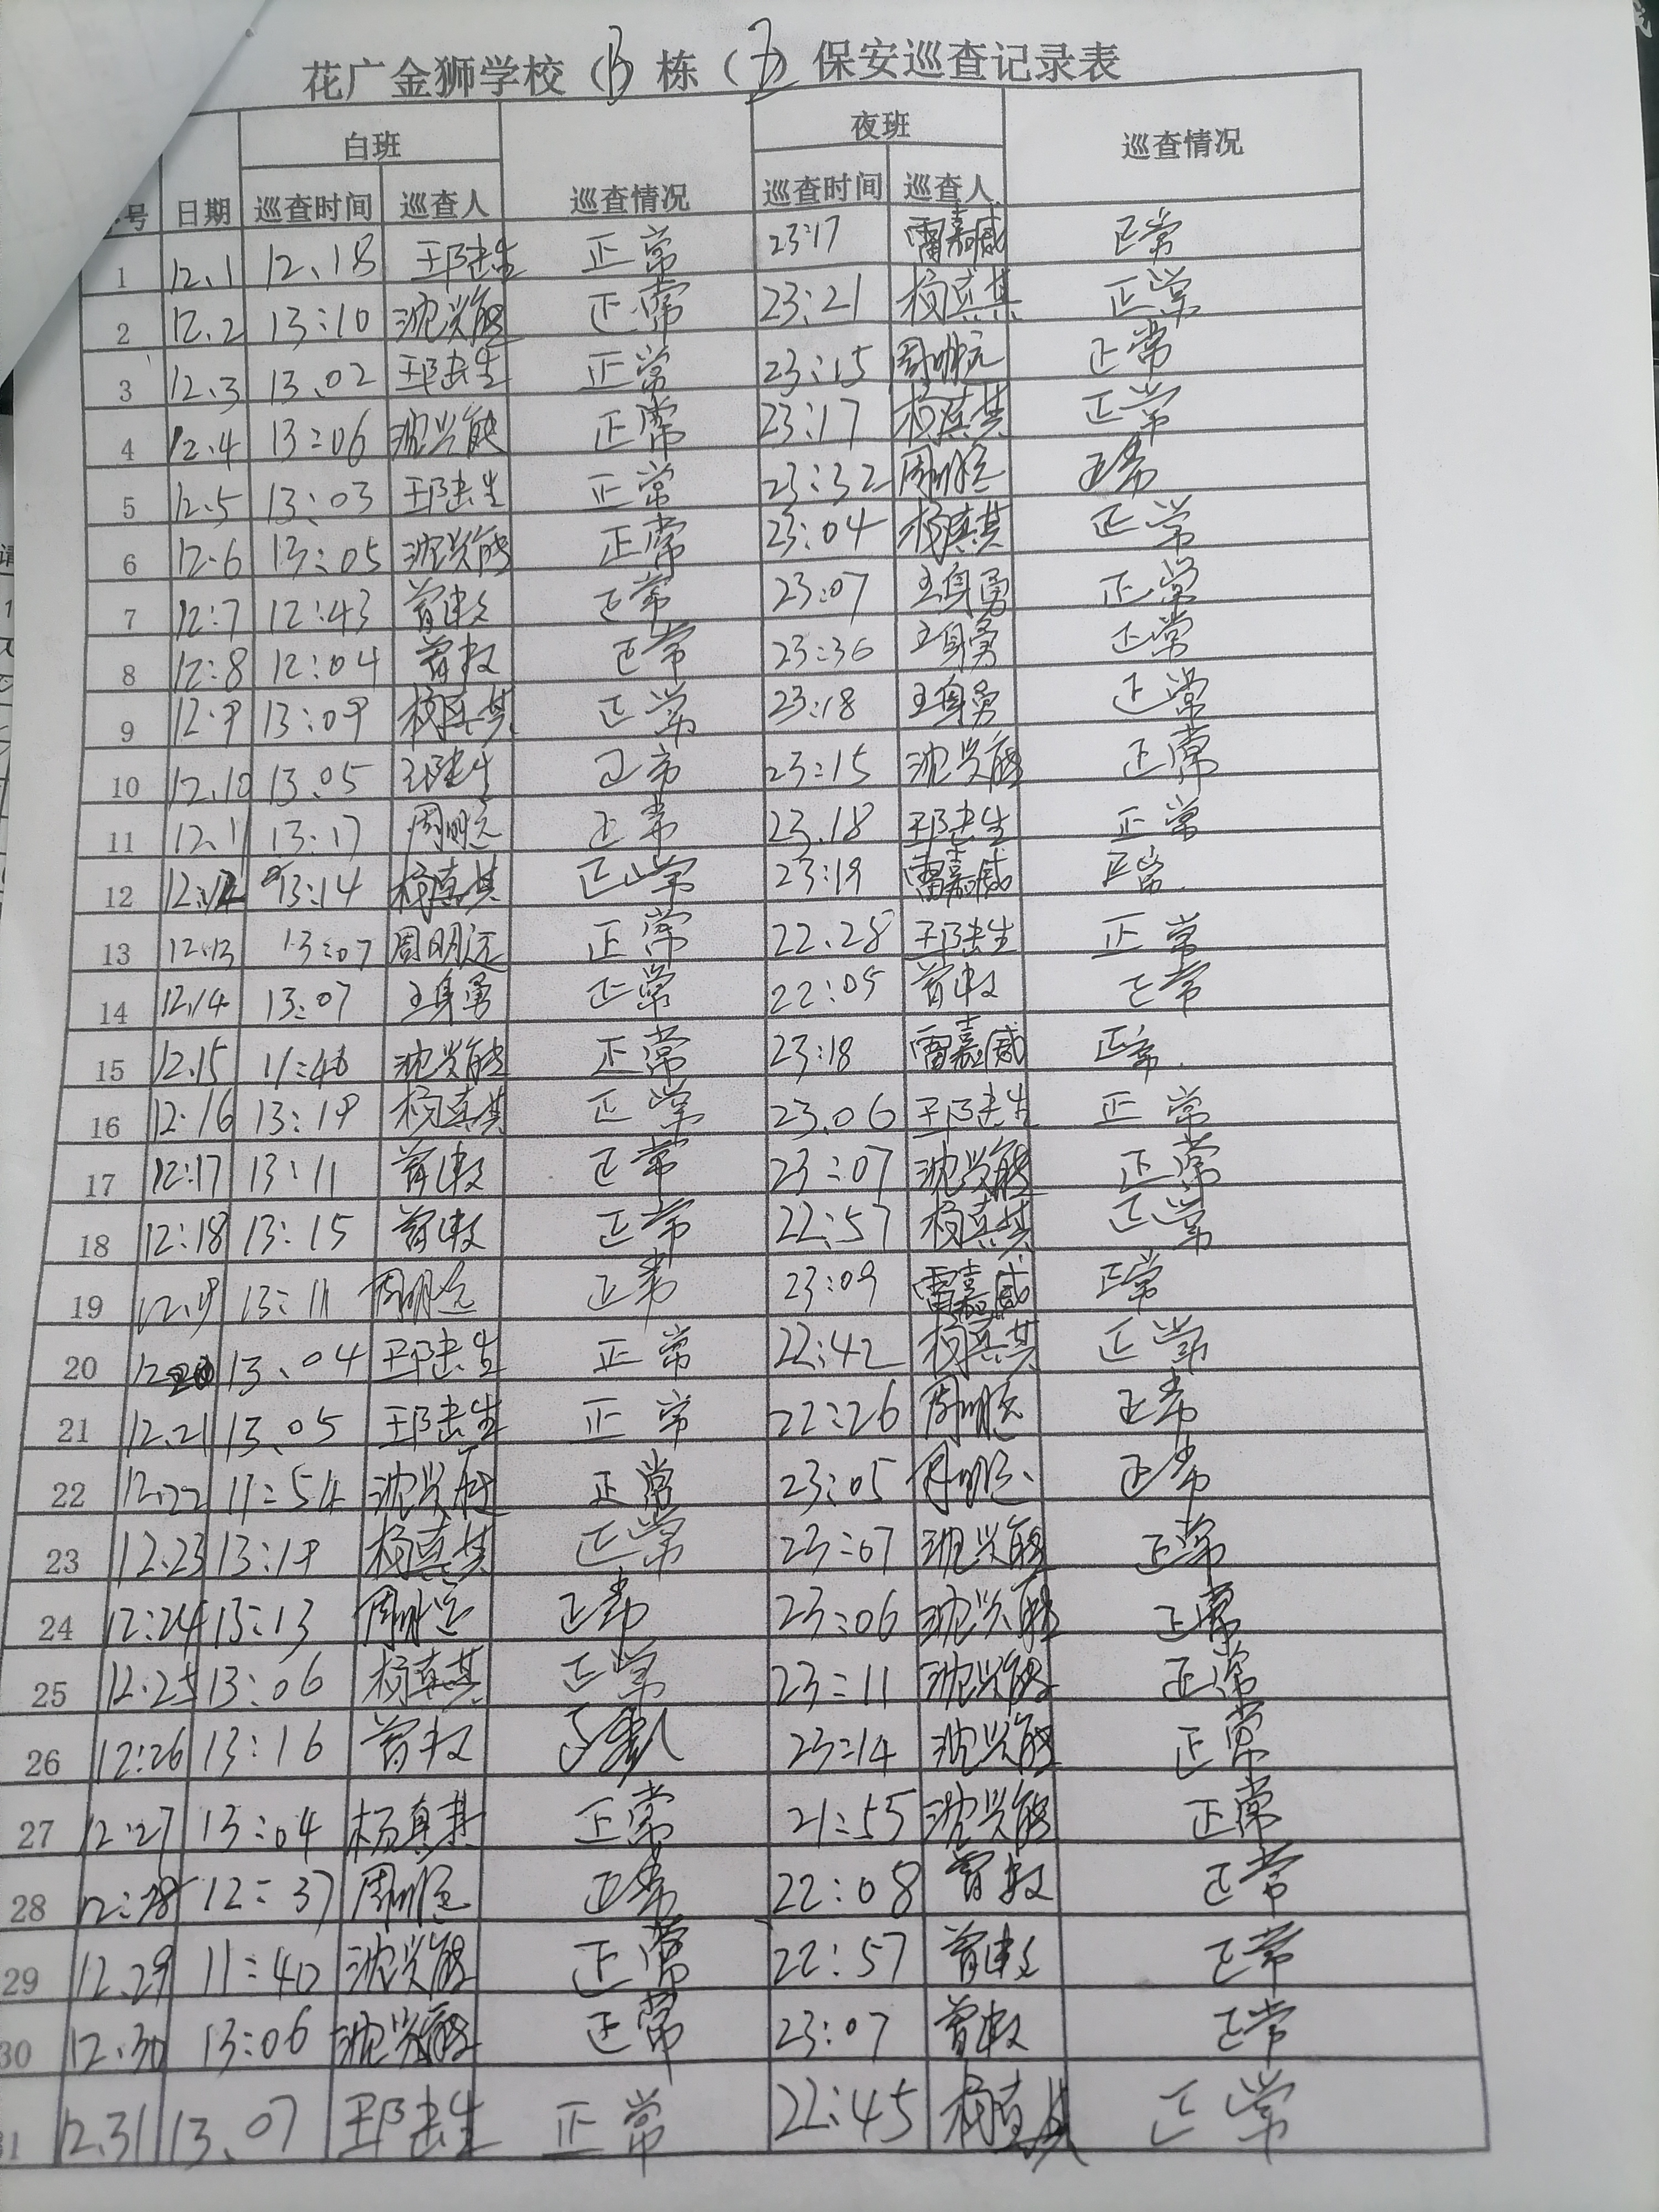 花广金狮学校（B）栋（卫）保安巡查记录表
白班 夜班
号 日期 巡查时间 巡查人 巡查情况 巡查时间 巡查人 巡查情况
1 12.1 12.18 正常 23:17 雷嘉威 正常
2 12.2 13:10 沈兴能 正常 23:21 杨真其 正常
3 12.3 13.02 正常 23:15 周明远 正常
4 12.4 13:06 沈兴能 正常 23:17 杨真其 正常
5 12.5 13:03 正常 23:32 周明远 正常
6 12.6 13:05 沈兴能 正常 23:04 杨真其 正常
7 12:7 12:43 正常 23:07 王身勇 正常
8 12:8 12:04 正常 23:36 王身勇 正常
9 12.9 13:09 杨真其 正常 23:18 王身勇 正常
10 12.10 13.05 正常 23:15 沈兴能 正常
11 12.11 13:17 周明远 正常 23.18 正常
12 12.12 13:14 杨真其 正常 23:19 雷嘉威 正常
13 12.13 13:07 周明远 正常 22.28 正常
14 12.14 13:07 王身勇 正常 22:05 正常
15 12.15 11:46 沈兴能 正常 23:18 雷嘉威 正常
16 12.16 13:19 杨真其 正常 23.06 正常
17 12:17 13:11 正常 23:07 沈兴能 正常
18 12:18 13:15 正常 22:57 杨真其 正常
19 12.19 13:11 周明远 正常 23:09 雷嘉威 正常
20 12.20 13.04 正常 22:42 杨真其 正常
21 12.21 13.05 正常 22:26 周明远 正常
22 12.22 11:54 沈兴能 正常 23:05 周明远 正常
23 12.23 13:19 杨真其 正常 23:07 沈兴能 正常
24 12:24 13:13 周明远 正常 23:06 沈兴能 正常
25 12.25 13:06 杨真其 正常 23:11 沈兴能 正常
26 12:26 13:16 23:14 沈兴能 正常
27 12:27 13:04 杨真其 正常 21:55 沈兴能 正常
28 12:28 12:37 周明远 正常 22:08 正常
29 12.29 11:40 沈兴能 正常 22:57 正常
30 12.30 13:06 沈兴能 正常 23:07 正常
31 12.31 13.07 正常 22:45 杨真其 正常